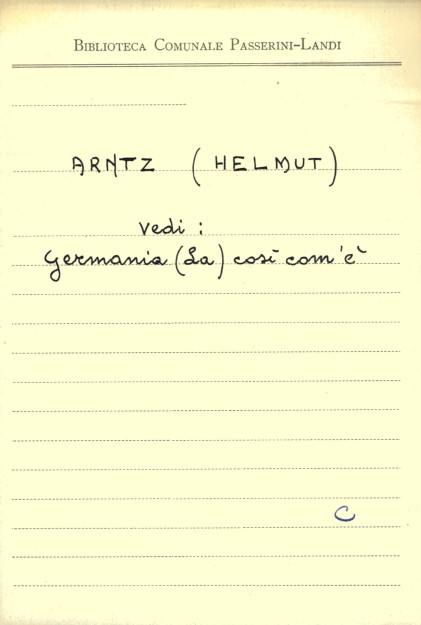 BIBLIOTECA COMUNALE PASSERINI-LANDI
ARNTZ (HELMUT)
vedi :
Germania (La) così com'è
C